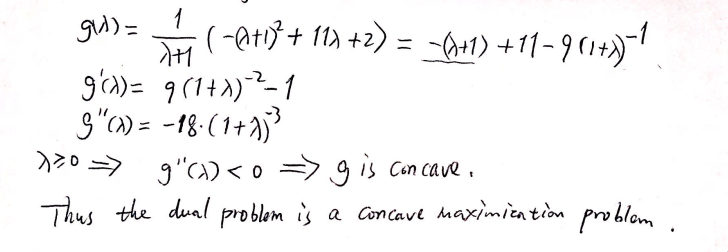 g(λ) = 1/(λ+1) (-(λ+1)² + 11λ+2) = -(λ+1) + 11 - 9(1+λ)⁻¹
g'(λ) = 9(1+λ)⁻² - 1
g''(λ) = -18·(1+λ)⁻³
λ≥0 ⟹ g''(λ) < 0 ⟹ g is concave.
Thus the dual problem is a concave maximization problem.